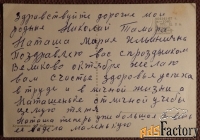 Здравствуйте дорогие мои
родные Николай Тамара
Наташа Мария Ильинична
Поздравляю вас с праздником
Великого октября желаю
вам счастья здоровья успеха
в труде и в личной жизни
Наташеньке отличной учебы
целую
Наташа теперь уже большая я ведь
ее видела маленькую